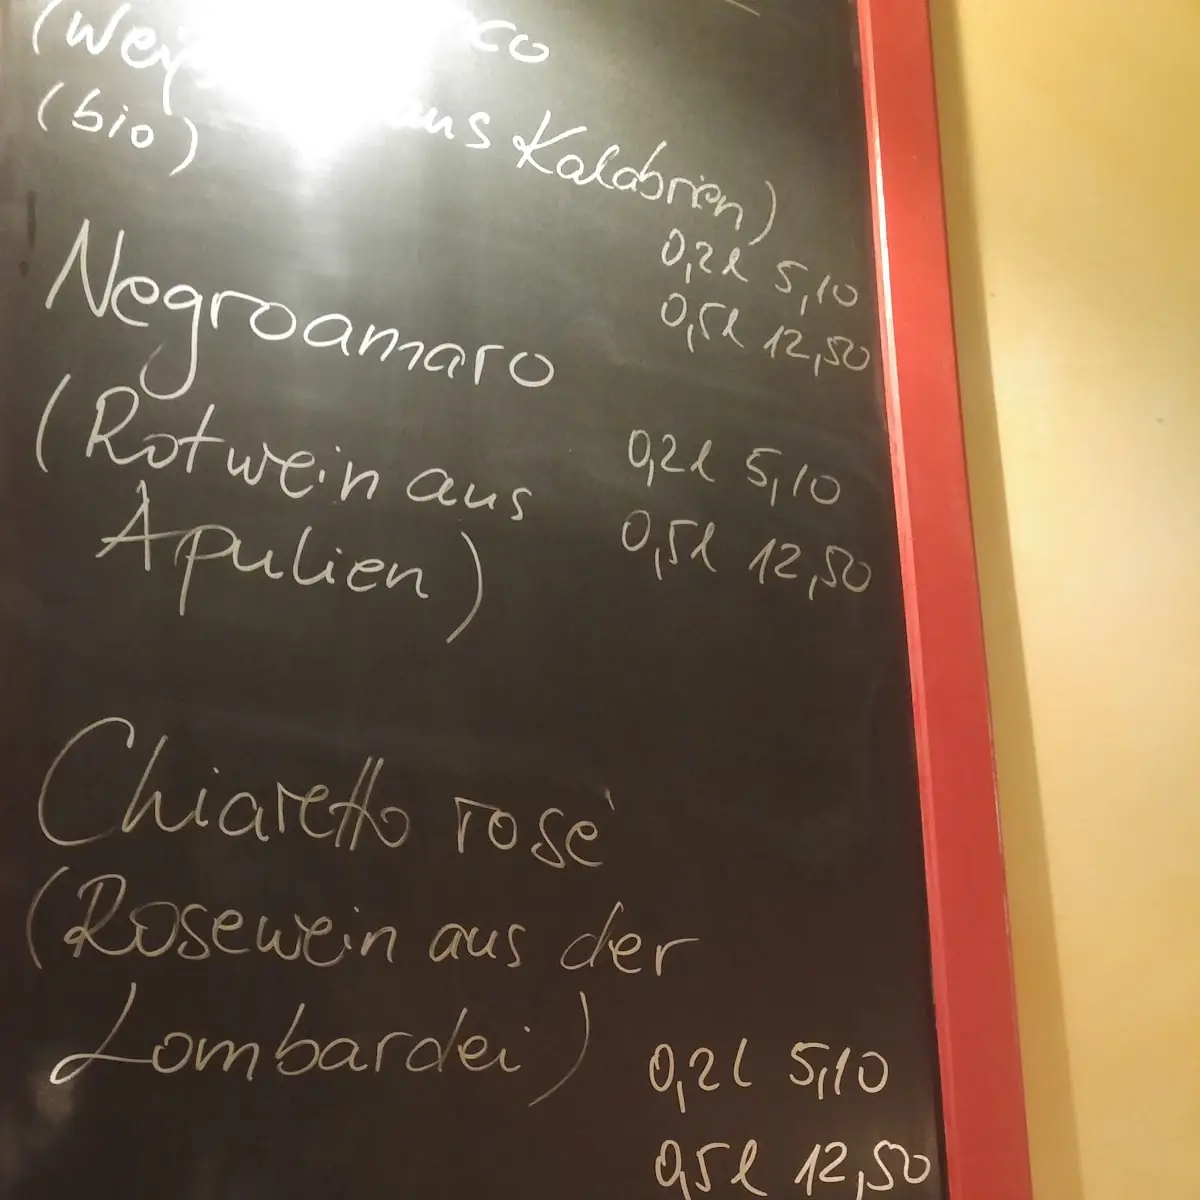 aus Kalabrien)
(bio)
0,2l 5,10
0,5l 12,50
Negroamaro
(Rotwein aus
Apulien)
0,2l 5,10
0,5l 12,50
Chiaretto rosé
(Rosewein aus der
Lombardei)
0,2l 5,10
0,5l 12,50